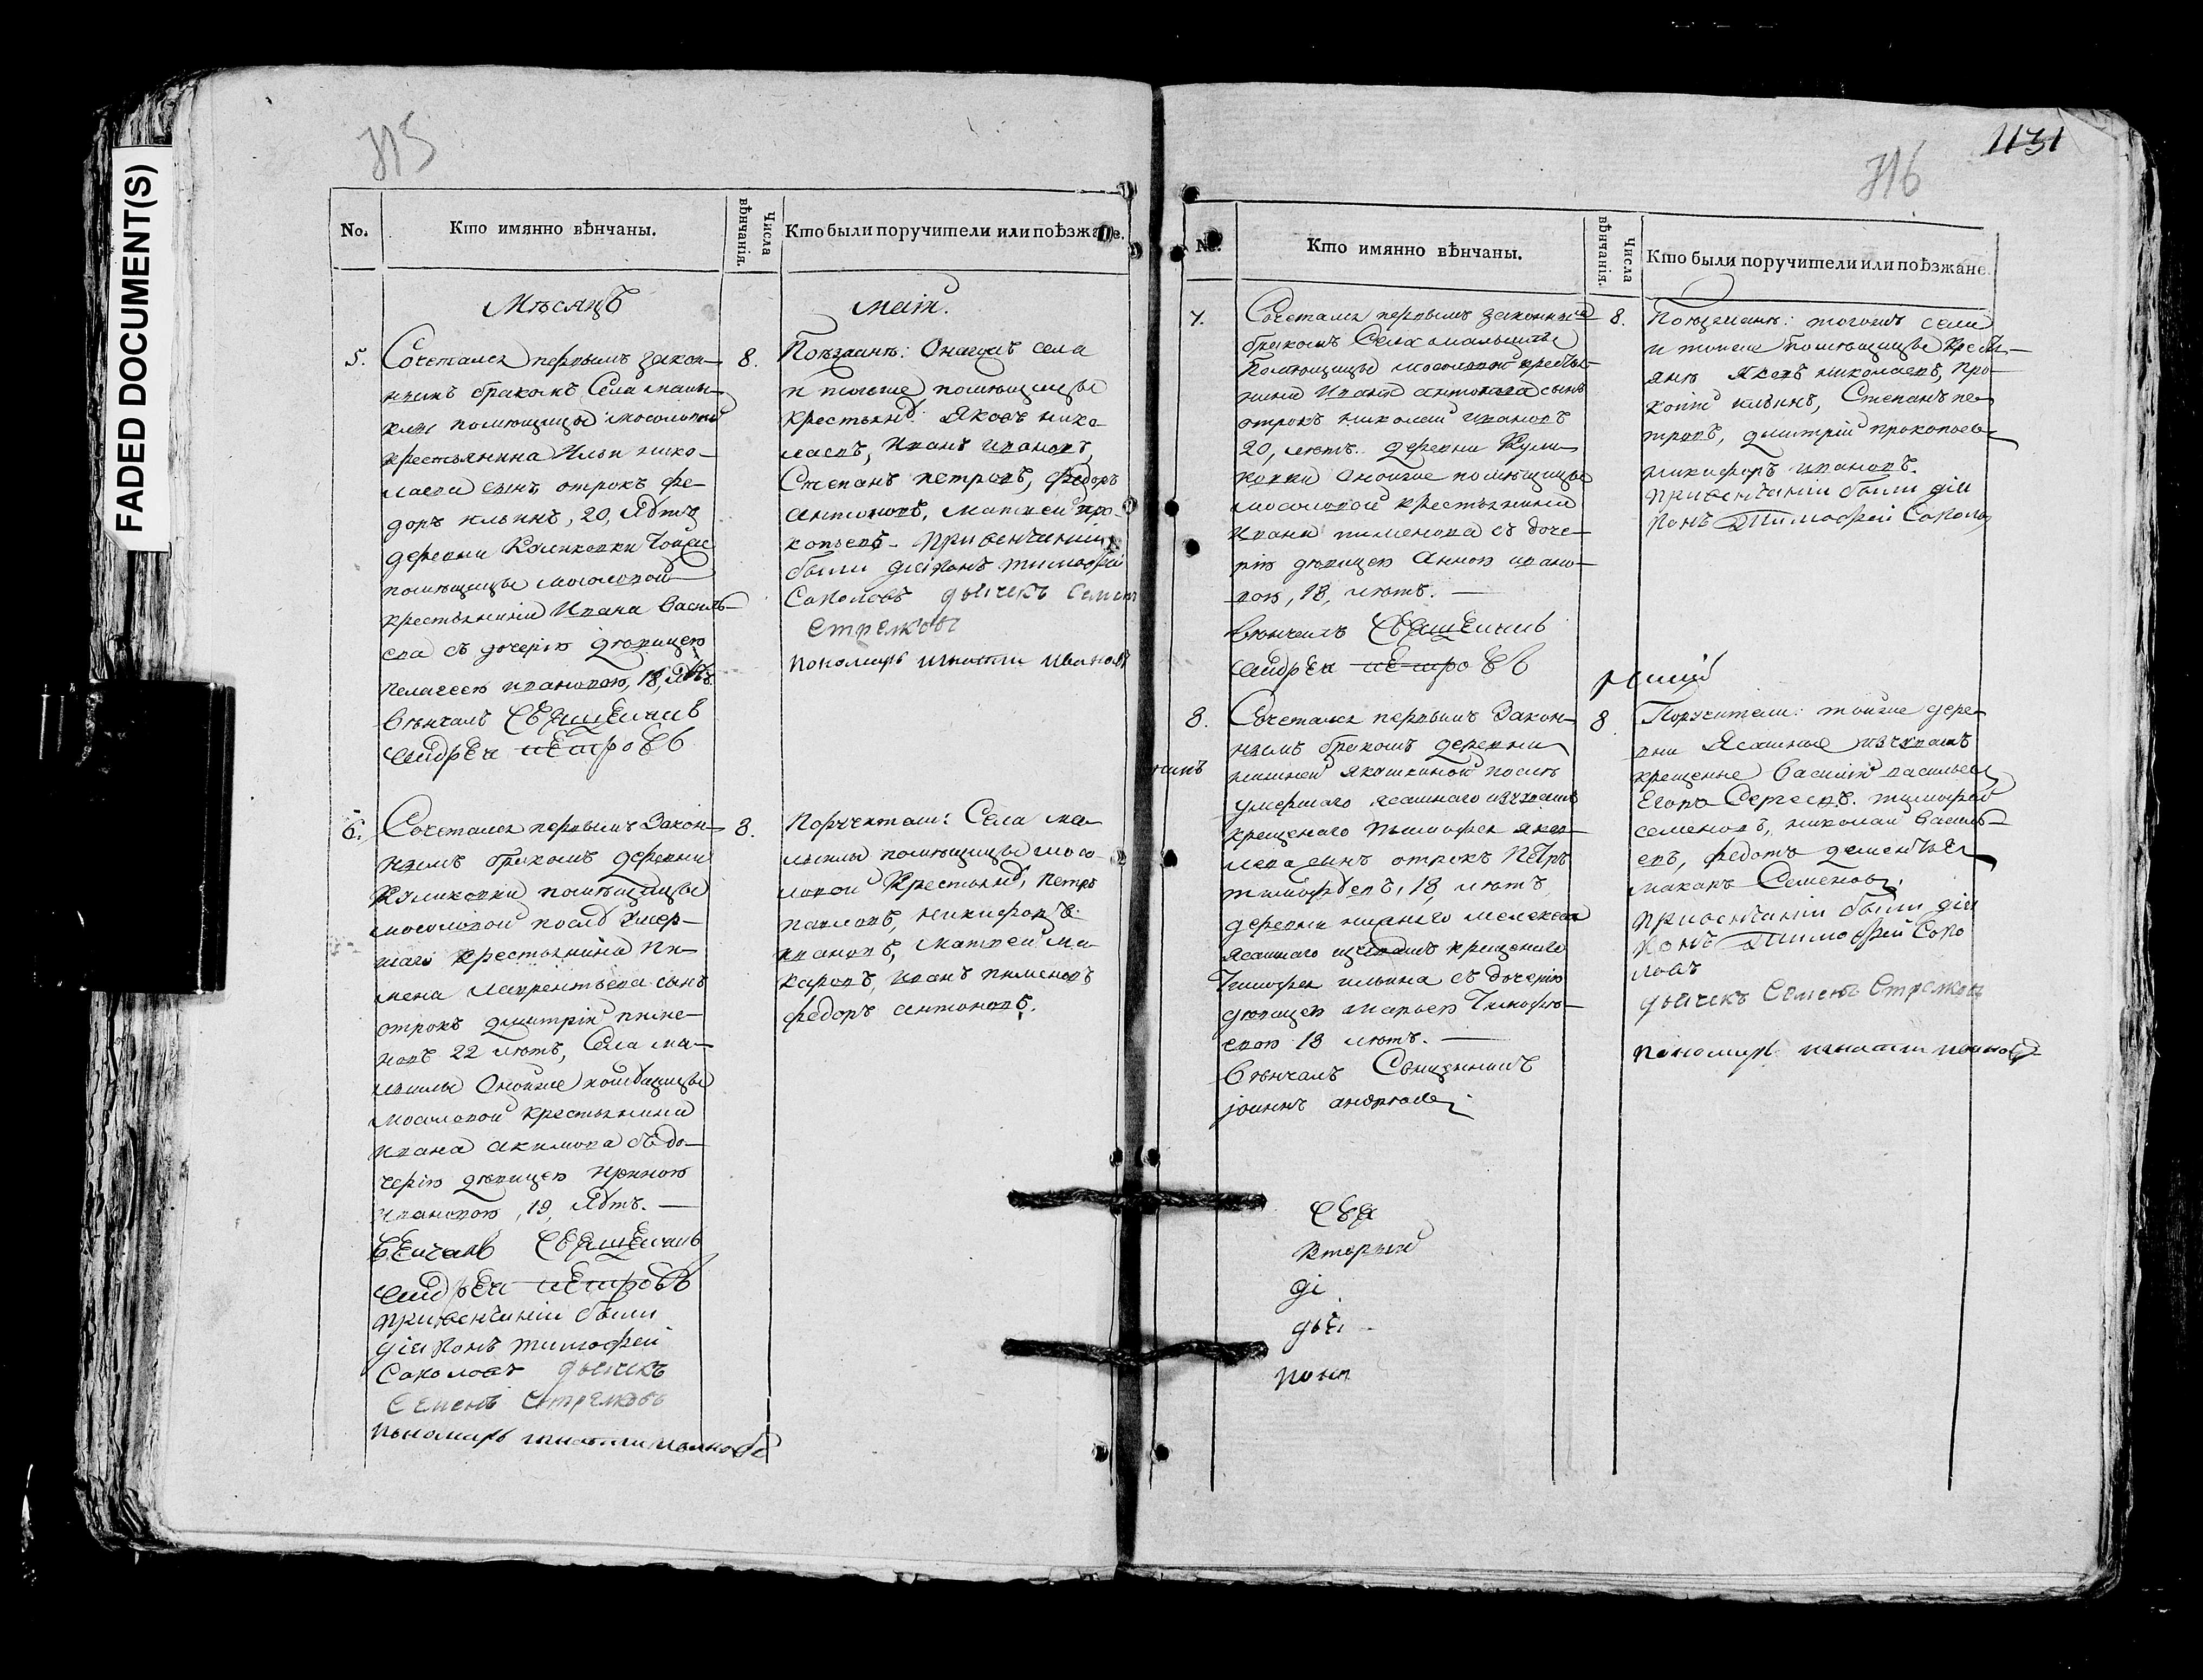 FADED DOCUMENT(S)
315
No.
Кто имянно вѣнчаны.
Числа вѣнчанія.
Кто были поручители или поѣзжане.
Мѣсяцъ
маій.
5.
Сочетался первымъ закон-
нымъ бракомъ Села малы-
клы помѣщицы мосоловой
крестьянина Ильи нико-
лаева сынъ отрокъ фе-
доръ ильинъ, 20, лѣтъ
деревни Куликовки тойже
помѣщицы мосоловой
крестьянина Ивана василь-
ева съ дочерію дѣвицею
пелагеею ивановою, 18, лѣтъ
вѣнчалъ священникъ
андрей петровъ
8.
Поѣзжанѣ: Онагожъ села
и тоюже помѣщицы
крестьянѣ: Яковъ нико-
лаевъ, Иванъ ивановъ,
Степанъ петровъ, федоръ
антоновъ, матвей про-
копьевъ - при венчаніи
были діаконъ тимофей
Саколовъ дьячекъ Семенъ
Стрелковъ
пономарь игнатии ивановъ
6.
Сочетался первымъ Закон-
нымъ бракомъ деревни
Куликовки помѣщицы
мосоловой послѣ умер-
шаго крестьянина Пи-
мена лаврентьева сынъ
отрокъ димитрій пиме-
новъ 22 лѣтъ, Села ма-
лыклы Онойже помѣщицы
мосоловой крестьянина
ивана акимова съ до-
черію дѣвицею Ириною
ивановою, 19, лѣтъ.
венчалъ священникъ
андрей петровъ
при венчаніи были
діаконъ тимофей
Саколовъ дьячекъ
Семенъ Стрелковъ
пономарь игнатии ивановъ
8.
Поручители: Села ма-
лыклы помѣщицы мосо-
ловой Крестьянѣ, петръ
павловъ, никифоръ
ивановъ, Матвей ма-
каровъ, иванъ пименовъ
федоръ антоновъ.
316
1131
No.
Кто имянно вѣнчаны.
Числа вѣнчанія.
Кто были поручители или поѣзжане.
7.
Сочетался первымъ законнымъ
бракомъ Села малыклы
Помѣщицы мосоловой кресть-
нина Ивана антонова сынъ
отрокъ николай ивановъ
20, лѣтъ. деревни Кули-
ковки Онойже помѣщицы
мосоловой крестьянина
Ивана пименова съ доче-
рію дѣвицею Анною ивано-
вою, 18, лѣтъ.
вѣнчалъ священникъ
андрей петровъ
8.
Поѣзжанѣ: тогожъ села
и тоюже помѣщицы кресть-
янѣ Яковъ николаевъ, Про-
копій ильинъ, Степанъ пе-
тровъ, димитрій прокопьевъ
никифоръ ивановъ.
при венчаніи были діа
конъ Тимофей Саколовъ
8.
Сочетался первымъ Закон-
нымъ бракомъ деревни
нижней якушкиной послѣ
умершаго ясашнаго изъ чувашъ
крещенаго тимофея яков-
лева сынъ отрокъ Петръ
тимофѣевъ, 18, лѣтъ
деревни нижняго мелекеса
ясашнаго изъ чувашъ крещенаго
Тимофея ильина съ дочерію
дѣвицею марьею Тимофѣ-
евою 18 лѣтъ.
Вѣнчалъ Священникъ
іоаннъ андреевъ
8
Поручители: тойже дере-
вни Ясашные изъ чувашъ
крещенные Василій васильевъ
Егоръ Сергеевъ. тимофей
семеновъ, николай василь-
евъ, федотъ дементьевъ
макаръ Семеновъ.
при венчаніи были діа
конъ Тимофей Соко
ловъ
дьячекъ Семенъ Стрелковъ
пономарь игнатии ивановъ
Свя
вторый
ді
дьч
поно